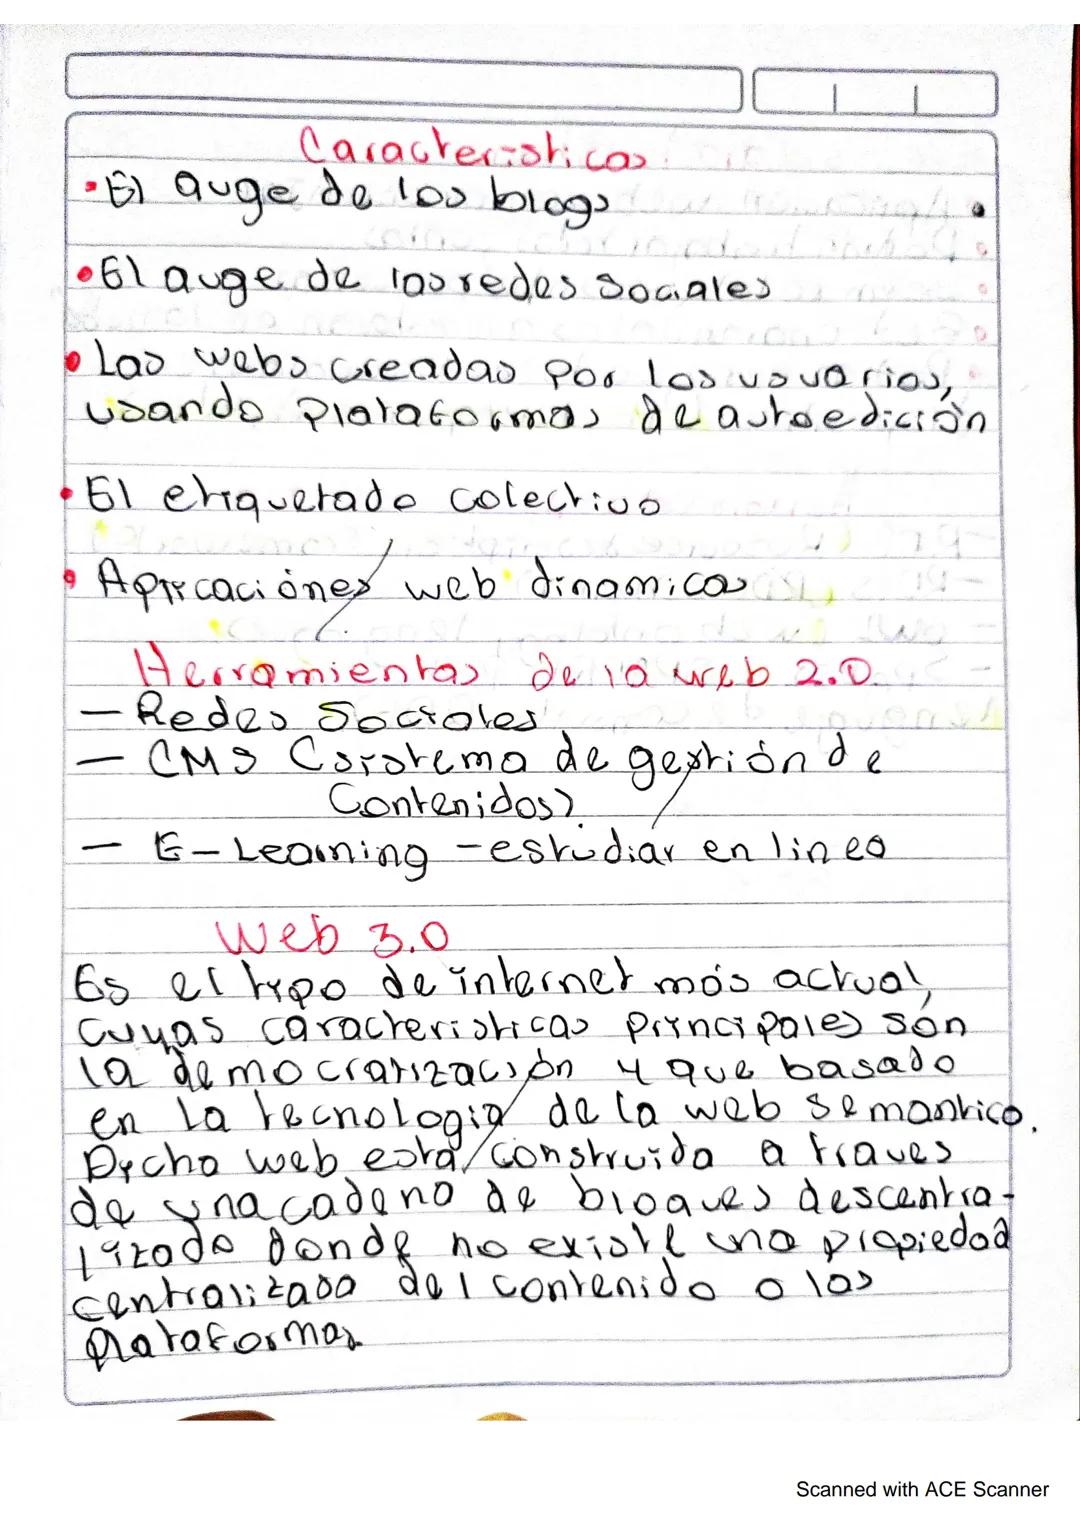 Caracteristicas
• El auge de los blogs
• El auge de las redes sociales
• Las webs creadas por los usuarios,
usando plataformas de autoedición
• El etiquetado colectivo
• Aplicaciónes web dinamicas
Herramientas de la web 2.0
- Redes Sociales
- CMS (sistema de gestión de
Contenidos)
- E-Learning - estudiar en linea
Web 3.0
Es el tipo de internet más actual,
cuyas caracteristicas principales son
la democratización y que basado
en la tecnologia de la web semantica.
Dicha web esta construida a traves
de una cadena de bloques descentra-
lizada donde no existe una propiedad
centralizada del contenido o las
plataformas
Scanned with ACE Scanner